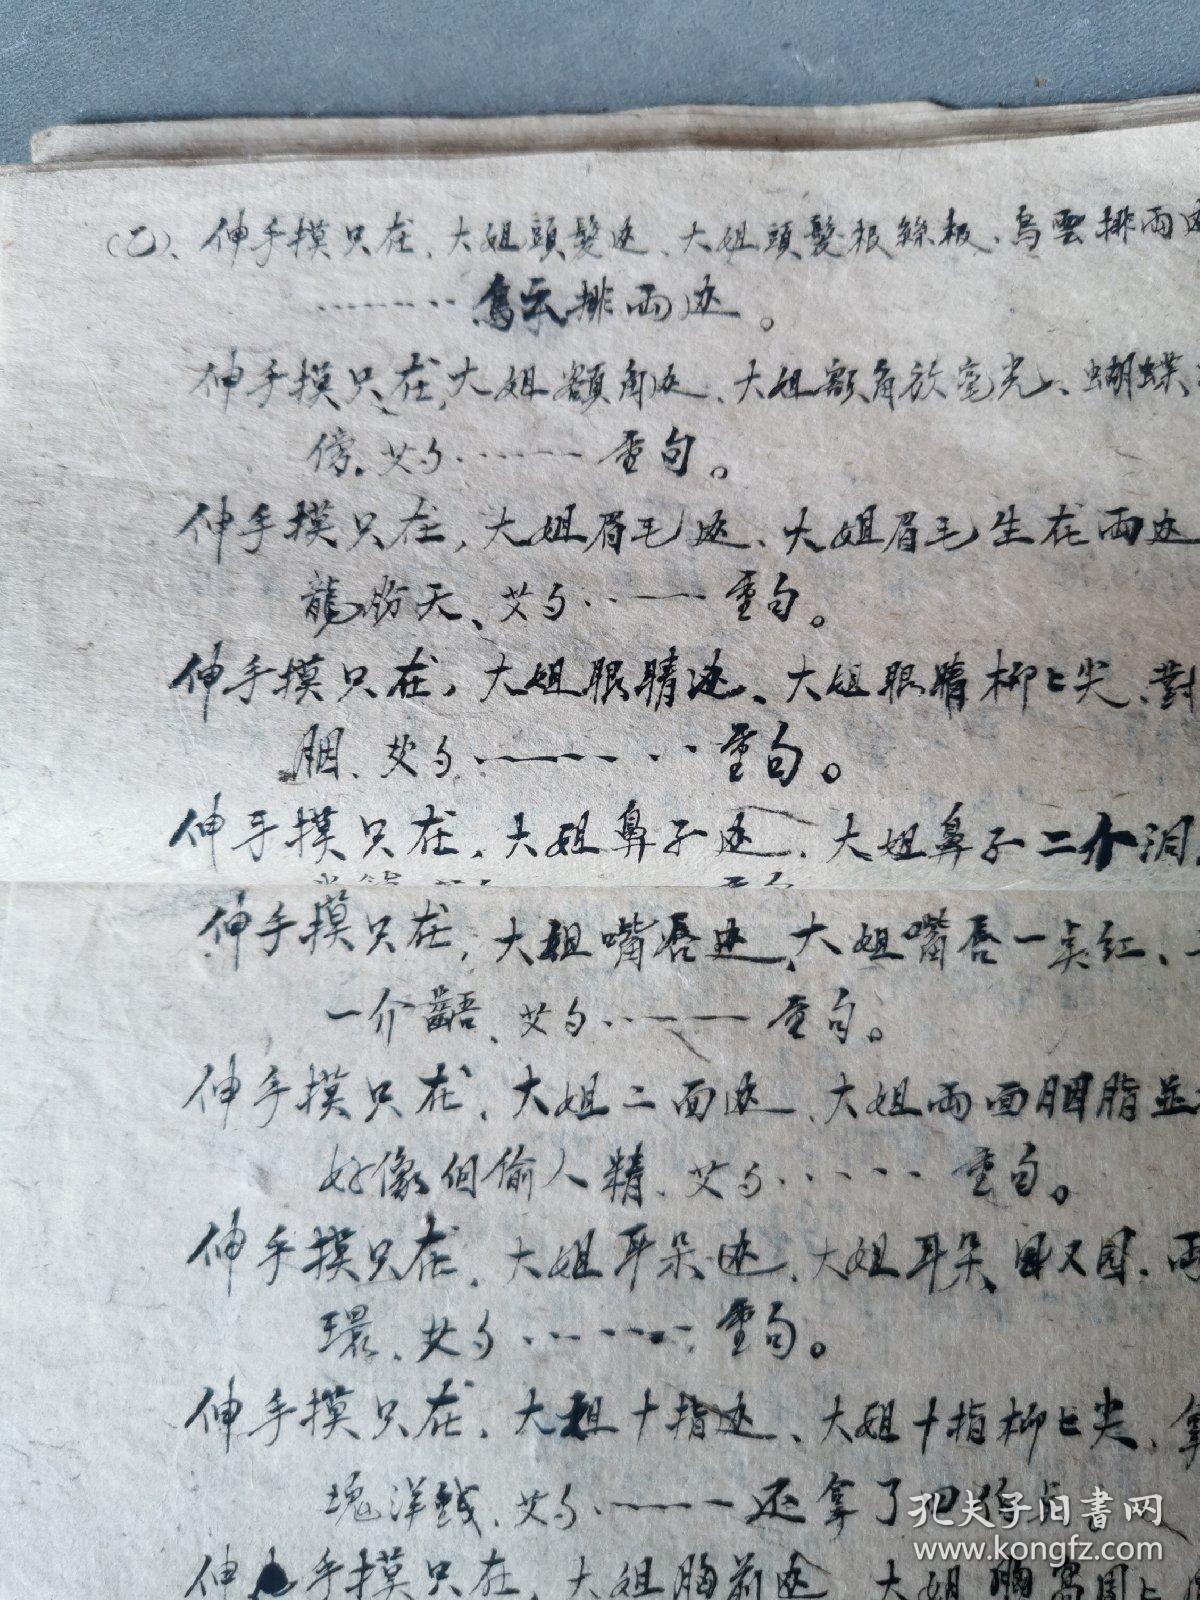 (乙)、伸手摸只在、大姐頭髮边、大姐頭髮根絲根、烏雲排両边
……烏云排両边。
伸手摸只在,大姐額角边、大姐額角放毫光、蝴蝶
傍、艾勺……重句。
伸手摸只在,大姐眉毛边、大姐眉毛生在両边
龍份天、艾勺……重句。
伸手摸只在,大姐眼睛边、大姐眼睛柳上尖、對
胭、艾勺……重句。
伸手摸只在、大姐鼻子边、大姐鼻子二介洞
伸手摸只在,大姐嘴唇边、大姐嘴唇一点紅、
一介齬、艾勺……重句。
伸手摸只在、大姐二面边、大姐両面胭脂並
好像個偷人精、艾勺……重句。
伸手摸只在、大姐耳朵边、大姐耳朵圆又园、両
環、艾勺……重句。
伸手摸只在、大姐十指边、大姐十指柳上尖、拿
塊洋錢、艾勺……还拿了四
伸手摸只在、大姐胸前边、大姐胸
孔夫子旧書网
www.kongfz.com